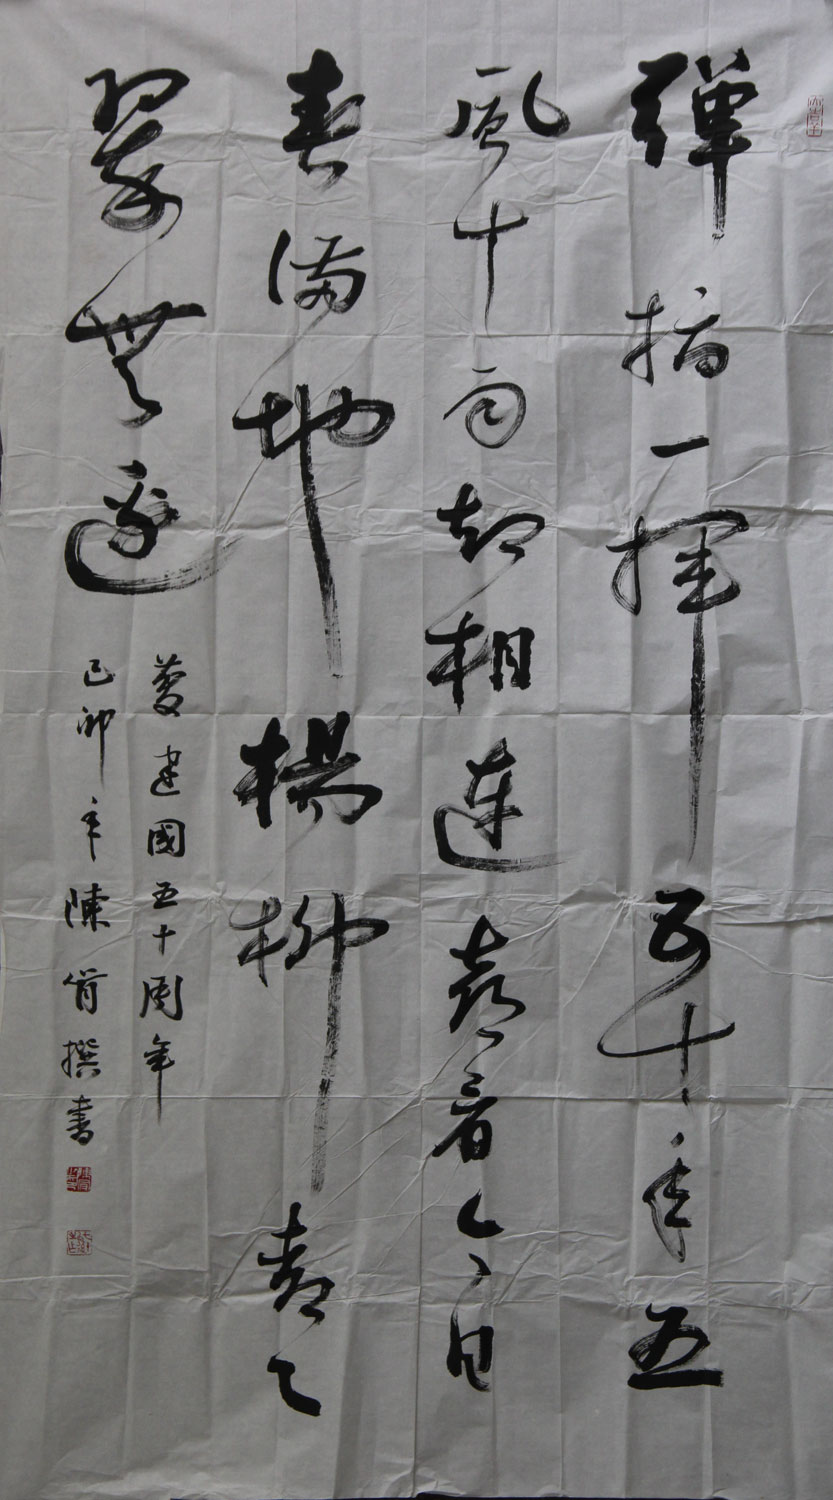 彈指一揮五十年五
風十雨却相連喜看今日
春滿地楊柳青々
翠無邊
慶建國五十周年
己卯年陳撰書